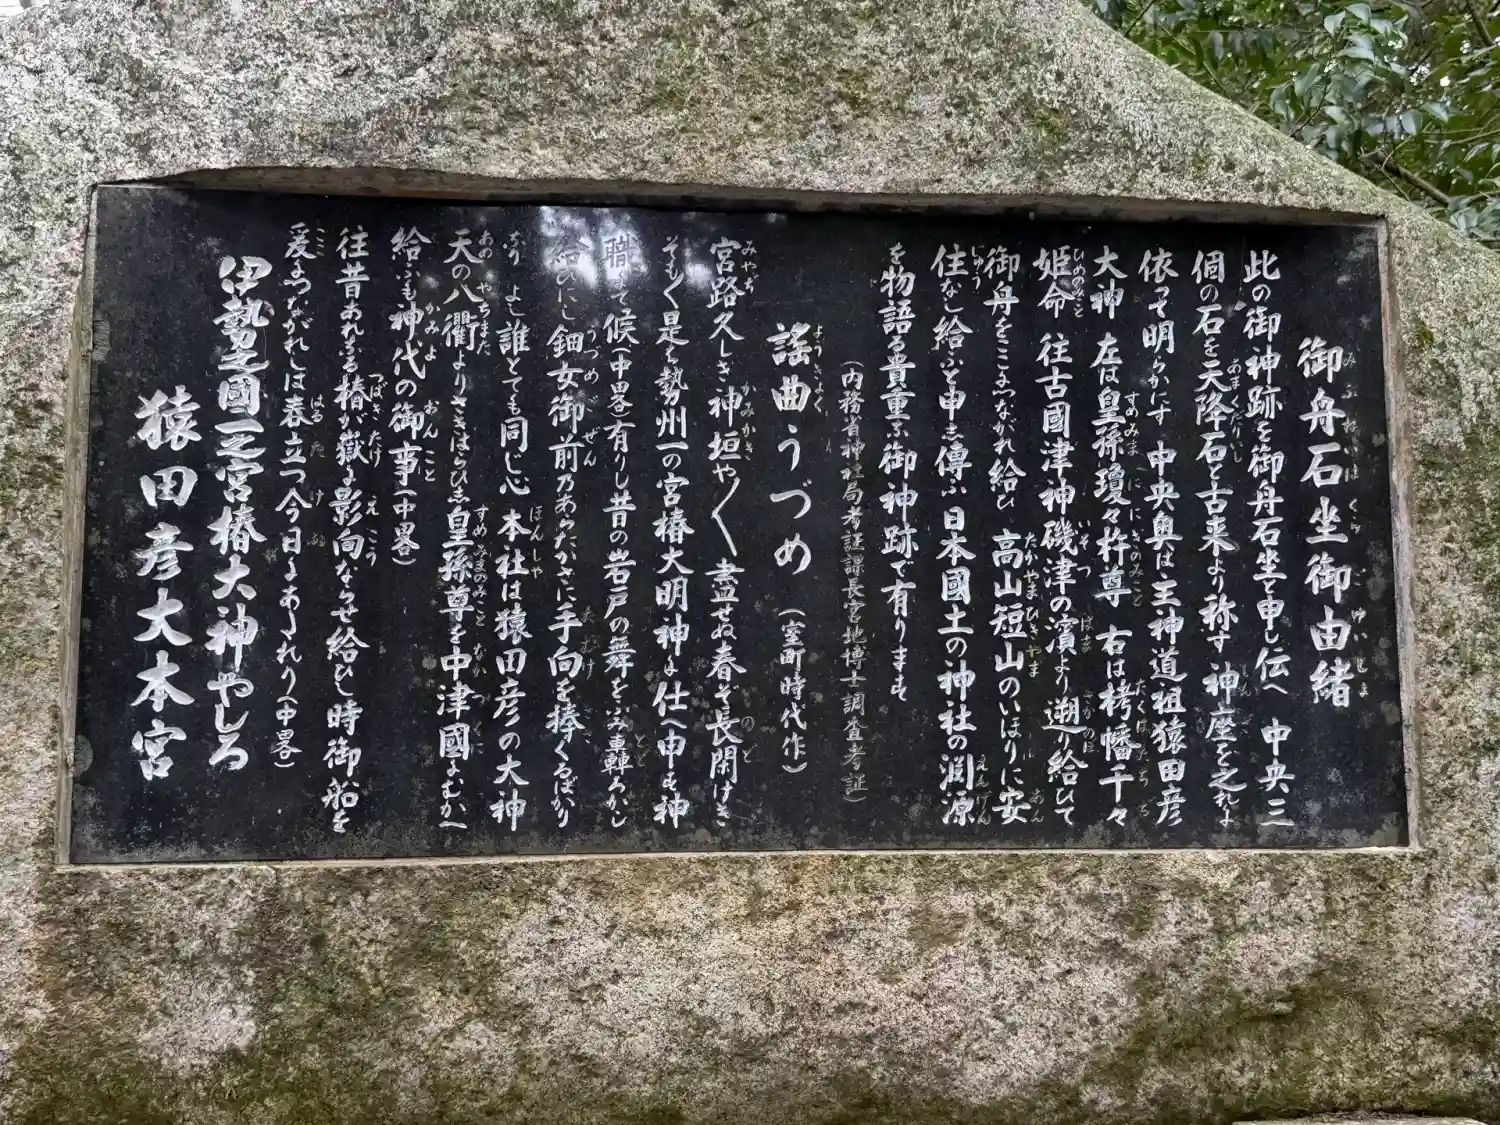 御舟石坐御由緒
此の御神跡を御舟石坐と申し伝へ 中央三
個の石を天降石と古来より称す 神座を之れに
依って明らかにす 中央奥は主神道祖猿田彦
大神 左は皇孫瓊々杵尊 右は栲幡千々
姫命 往古國津神磯津の濱より遡り給ひて
御舟をここにつながれ給ひ 高山短山のいほりに安
住なし給ふと申し傳ふ 日本國土の神社の淵源
を物語る貴重な御神跡で有ります
(内務省神社局考証課長宮地博士調査考証)
謡曲うづめ (室町時代作)
宮路久しき神垣や〱 盡せぬ春ぞ長閑けき
そも〱是は勢州一の宮椿大明神に仕へ申す神
職にて候(中畧)有りし昔の岩戸の舞をふみ轟かし
給ひにし 鈿女御前乃あらたかさに手向を捧くるばかり
なり よし誰とても同じ心 本社は猿田彦の大神
天の八衢よりさきはらひし皇孫尊を中津國にむかへ
給ふも神代の御事(中畧)
往昔あれなる椿が嶽に影向ならせ給ひし時御船を
爰につながれしは春立つ今日にあ れり(中畧)
伊勢之國一之宮椿大神やしろ
猿田彦大本宮